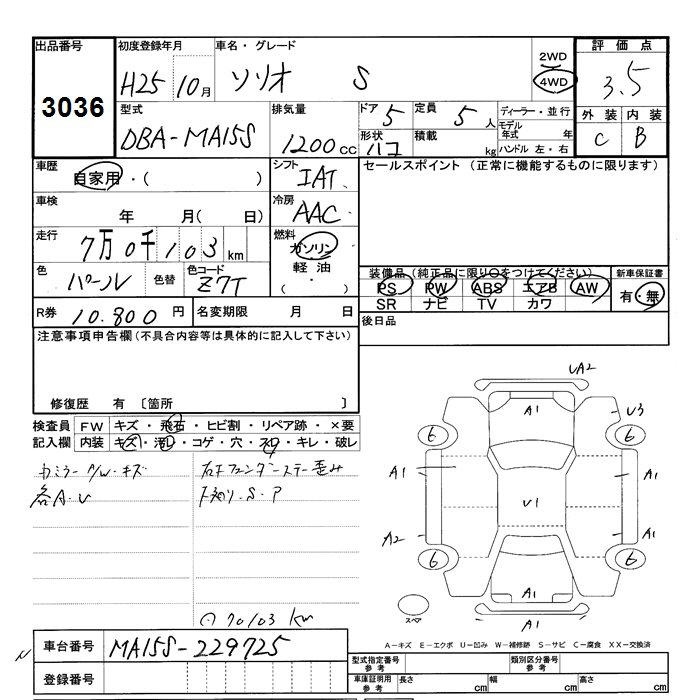 出品番号 初度登録年月 車名・グレード 2WD 評価点
3036 H25 10月 ソリオ S 4WD 3.5
型式 排気量 ドア 5 定員 5人 ディーラー・並行 外装 内装
DBA-MA15S 1200cc 形状 ハコ 積載 kg モデル年式 年 C B
ハンドル 左・右
車歴 自家用・( ) シフト IAT セールスポイント (正常に機能するものに限ります)
車検 年 月( 日) 冷房 AAC
走行 7万0千103km 燃料 ガソリン
軽油
( ・ )
色 パール 色替 色コード Z7T 装備品(純正品に限り○をつけてください) 新車保証書
PS PW ABS エアB AW 有・無
SR ナビ TV カワ
R券 10.800円 名変期限 月 日 後日品
注意事項申告欄(不具合内容等は具体的に記入して下さい)
修復歴 有 〔箇所 〕
検査員 FW キズ・飛石・ヒビ割・リペア跡・×要
記入欄 内装 キズ・汚レ・コゲ・穴・スレ・キレ・破レ
UA2
A1 U3
6 6
A1 A1
U1
A2 A1
6 6
A1
スペア A1
各A.U 下廻り.S.P
70103km
A-キズ E-エクボ U-凹み W-補修跡 S-サビ C-腐食 XX-交換済
車台番号 MA15S-229725 型式指定番号 参考 類別区分番号 参考
登録番号 車庫証明用 参考 長さ cm 幅 cm 高さ cm